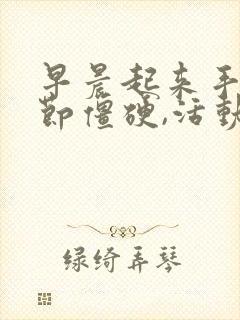 早晨起来手
节僵硬,活动
绿绮弄琴